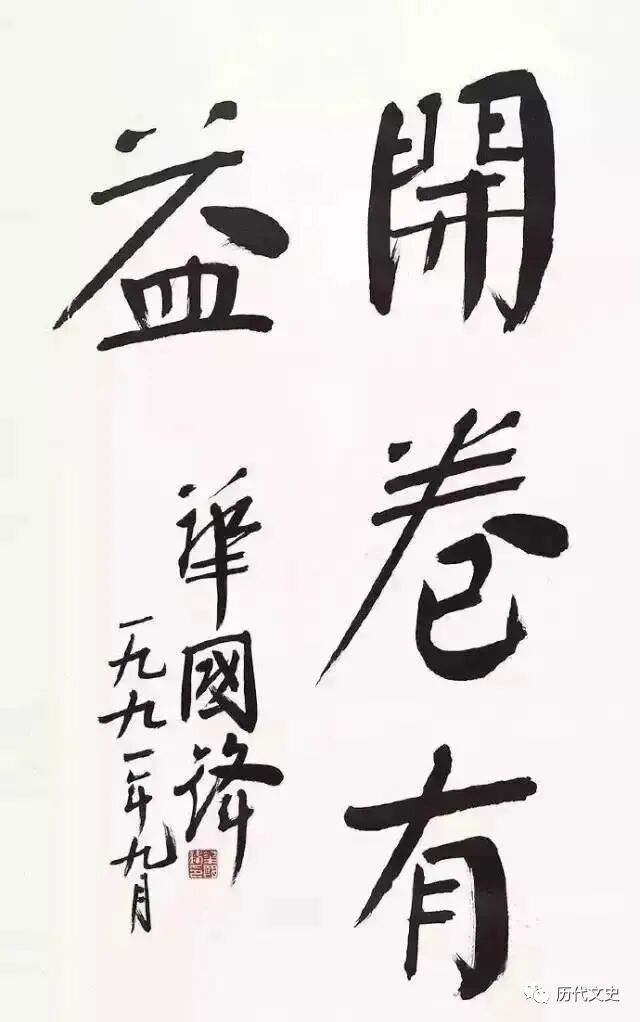 開卷有
益
華國鋒
一九九一年九月
历代文史